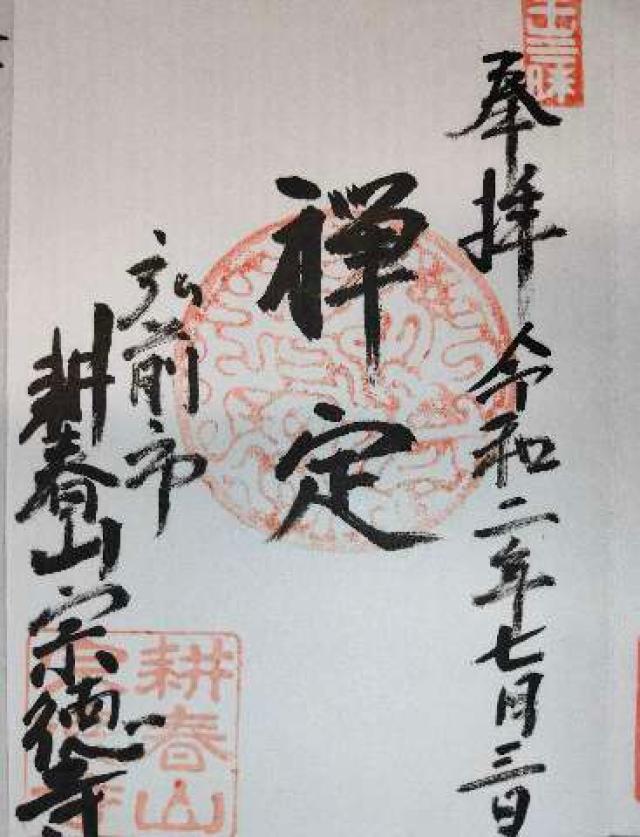 奉拝 令和二年七月三日
禅定
弘前市
耕春山宗徳寺
耕春山